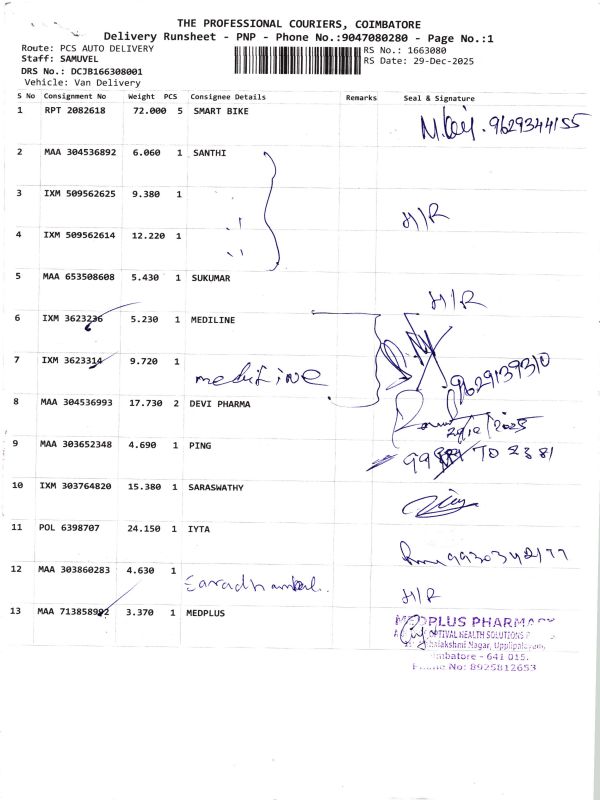 THE PROFESSIONAL COURIERS, COIMBATORE
Delivery Runsheet - PNP - Phone No.:9047080280 - Page No.:1
Route: PCS AUTO DELIVERY
RS No.: 1663080
Staff: SAMUVEL
RS Date: 29-Dec-2025
DRS No.: DCJB166308001
Vehicle: Van Delivery
S No Consignment No Weight PCS Consignee Details Remarks Seal & Signature
1 RPT 2082618 72.000 5 SMART BIKE 9629344155
2 MAA 304536892 6.060 1 SANTHI
3 IXM 509562625 9.380 1 "
H/R
4 IXM 509562614 12.220 1 "
5 MAA 653508608 5.430 1 SUKUMAR
H/R
6 IXM 3623236 5.230 1 MEDILINE
7 IXM 3623314 9.720 1
mediline
9629139310
8 MAA 304536993 17.730 2 DEVI PHARMA
29/12/2025
9 MAA 303652348 4.690 1 PING
10 IXM 303764820 15.380 1 SARASWATHY
11 POL 6398707 24.150 1 IYTA
12 MAA 303860283 4.630 1
H/R
13 MAA 713858992 3.370 1 MEDPLUS
MEDPLUS PHARMACY
OPTIVAL HEALTH SOLUTIONS
Nagar, Uppilipalayam,
Coimbatore - 641 015.
Phone No: 8925812653